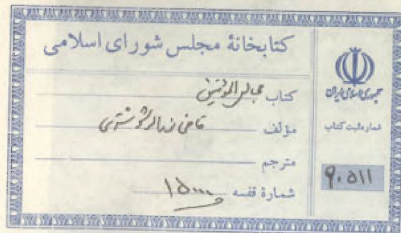 کتابخانهٔ مجلس شورای اسلامی
کتاب مجالس المؤمنین
مؤلف قاضی نورالله شوشتری
مترجم
شمارهٔ قفسه ۱۵۰۰۰
جمهوری اسلامی ایران
شماره ثبت کتاب
۹۰۵۱۱